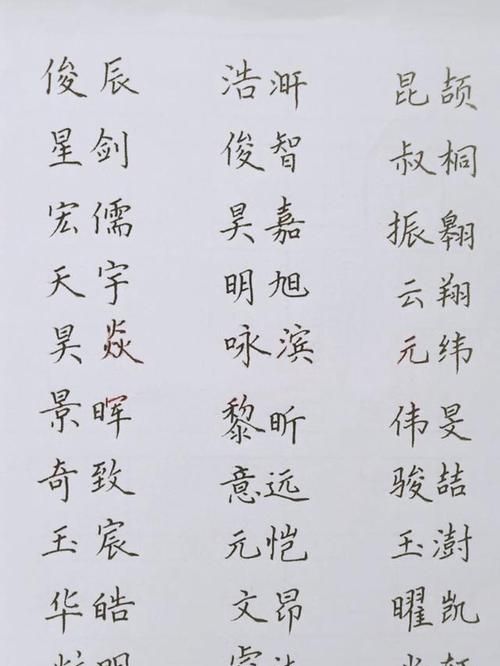 俊辰 浩涆 昆颉
星剑 俊智 叔桐
宏儒 昊嘉 振翱
天宇 明旭 云翔
昊焱 咏滨 元纬
景晖 黎昕 伟旻
奇致 意远 骏喆
玉宸 元恺 玉澍
华皓 文昂 曜凯